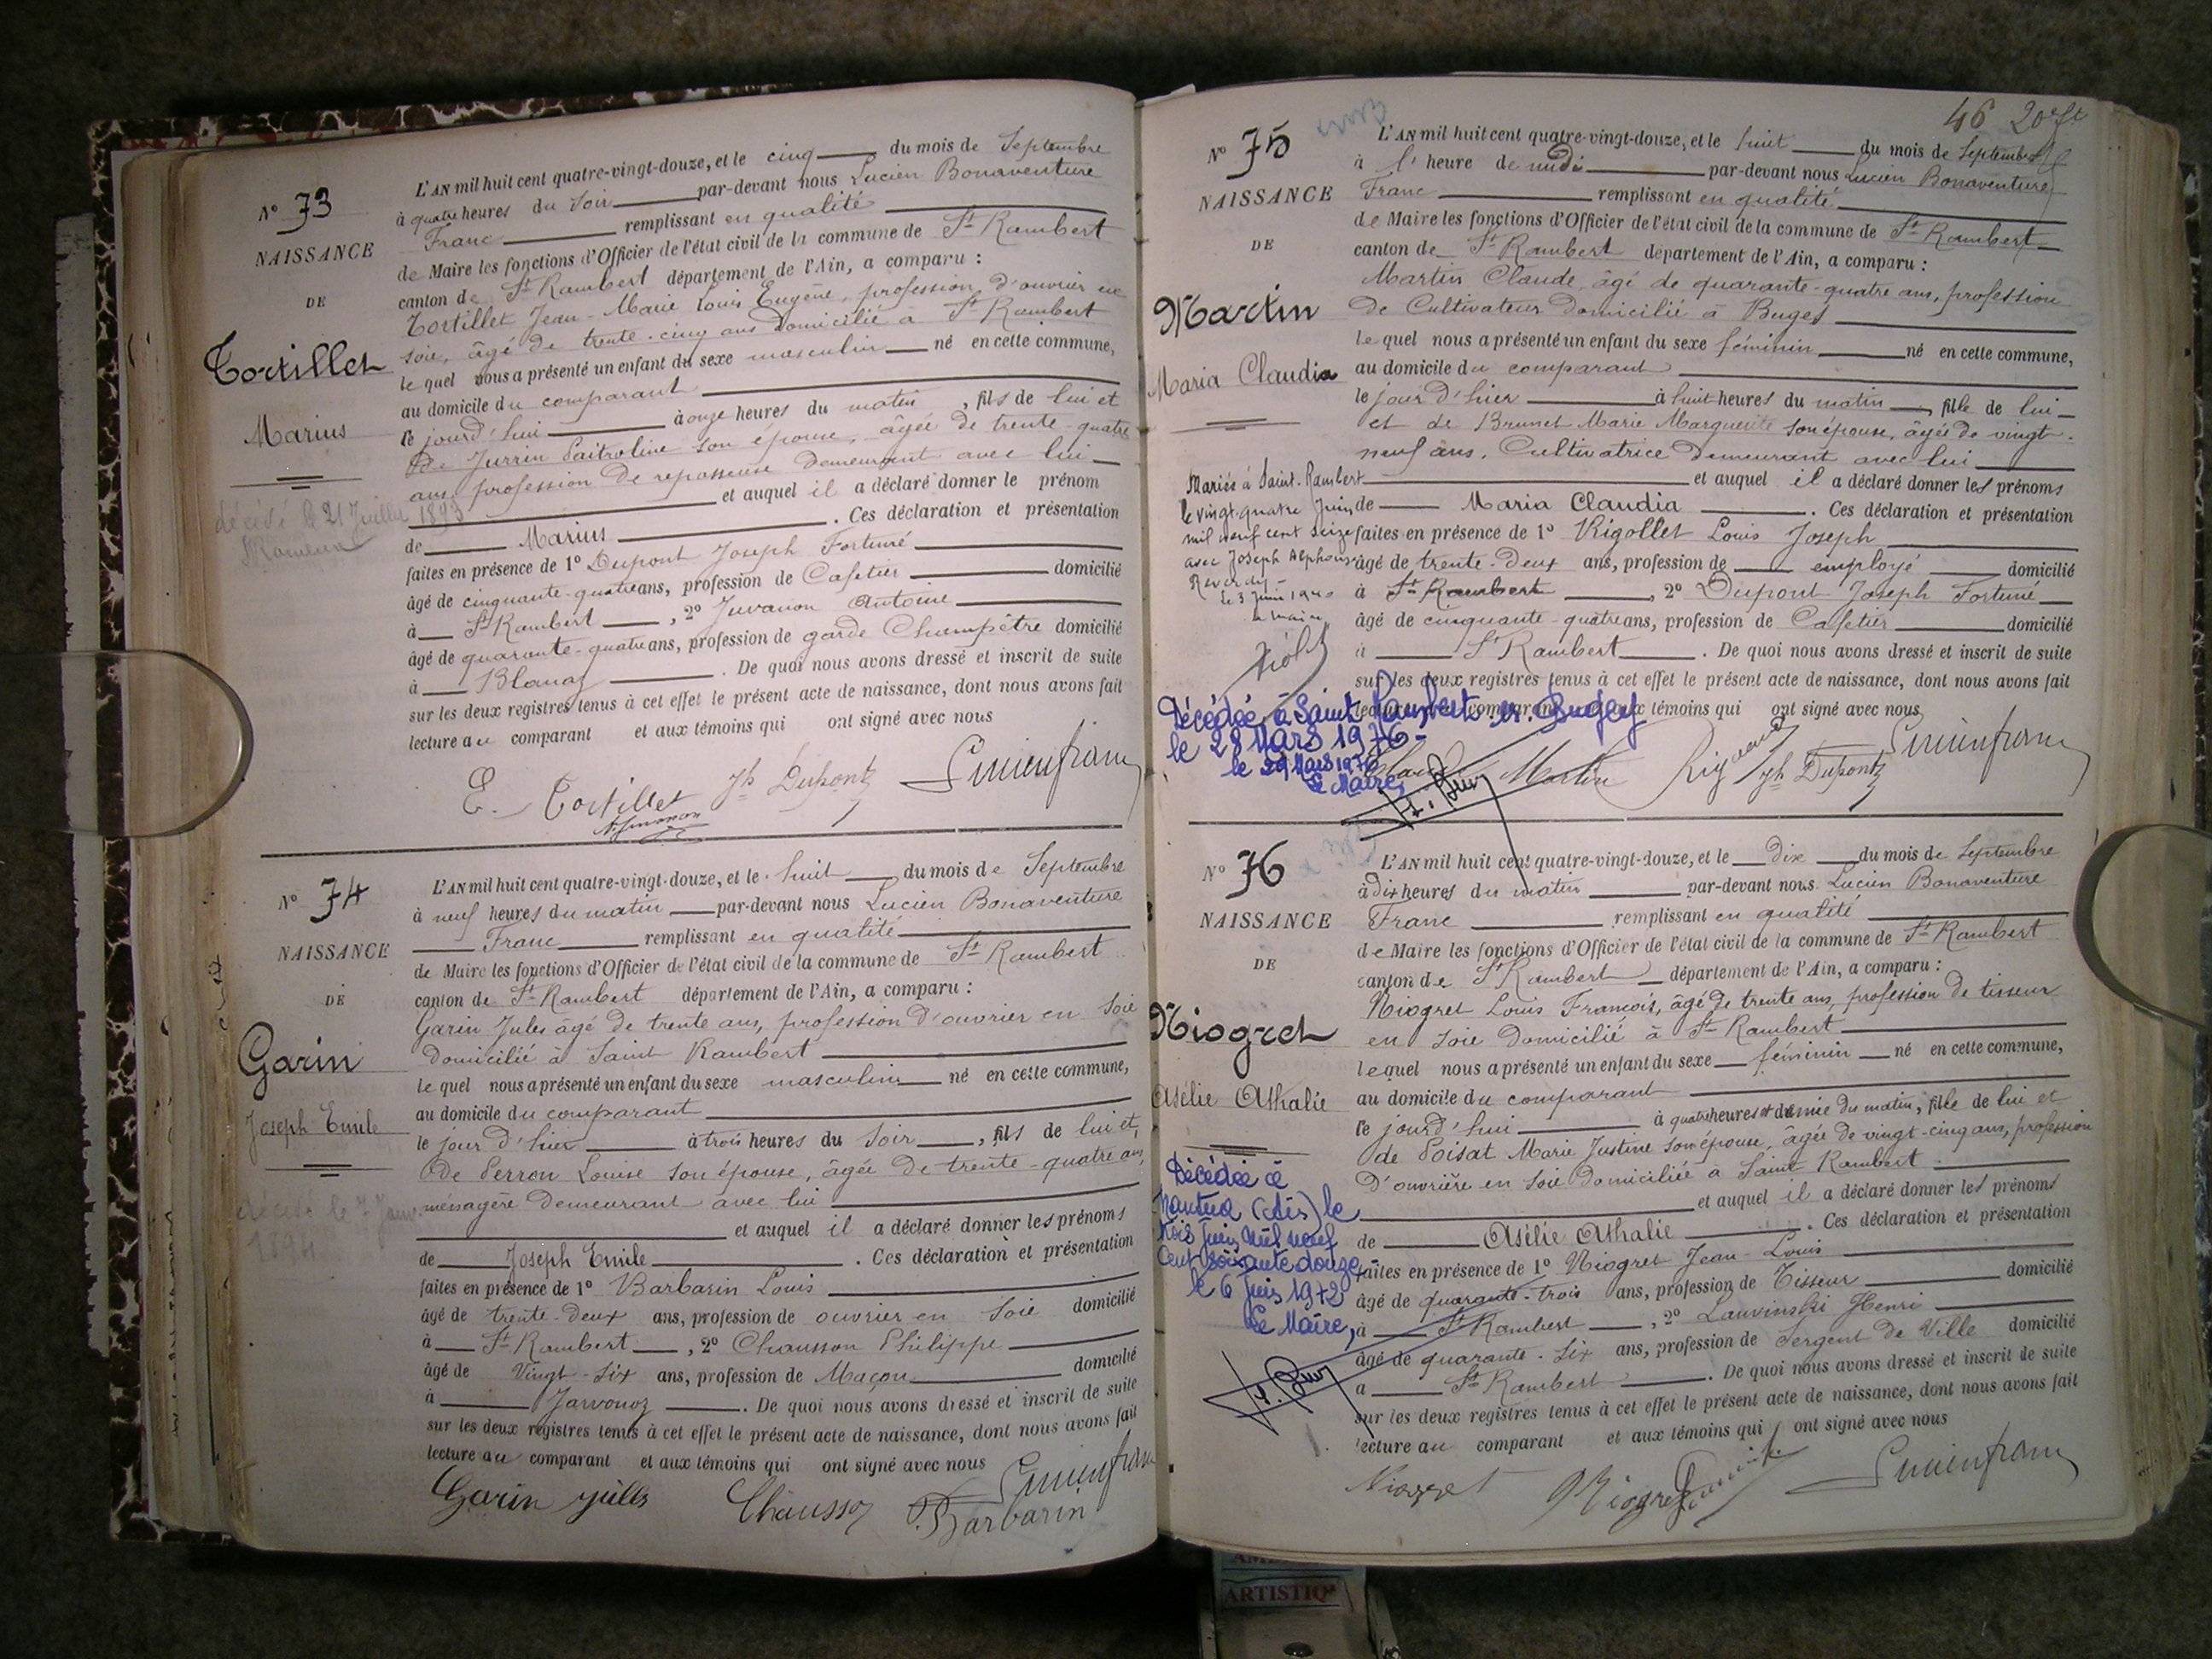 N° 73
NAISSANCE
DE
Tortillet
Marius
décédé le 21 Juillet 1893
L'AN mil huit cent quatre-vingt-douze, et le cinq du mois de Septembre
à quatre heures du soir par-devant nous Lucien Bonaventure
Franc remplissant en qualité
de Maire les fonctions d'Officier de l'état civil de la commune de St Rambert
canton de St Rambert département de l'Ain, a comparu :
Tortillet Jean-Marie Louis Eugène, profession d'ouvrier en
soie, âgé de trente-cinq ans domicilié à St Rambert
lequel nous a présenté un enfant du sexe masculin né en cette commune,
au domicile du comparant
le jourd'hui à onze heures du matin, fils de lui et
de Jurrin son épouse, âgée de trente-quatre
ans, profession de repasseuse demeurant avec lui
et auquel il a déclaré donner le prénom
de Marius. Ces déclaration et présentation
faites en présence de 1° Dupont Joseph Fortuné
âgé de cinquante-quatre ans, profession de Cafetier domicilié
à St Rambert, 2° Juvanon Antoine
âgé de quarante-quatre ans, profession de garde Champêtre domicilié
à Blanaz. De quoi nous avons dressé et inscrit de suite
sur les deux registres tenus à cet effet le présent acte de naissance, dont nous avons fait
lecture au comparant et aux témoins qui ont signé avec nous
E. Tortillet Jh Dupont Lucien franc
N° 74
NAISSANCE
DE
Garin
Joseph Emile
décédé le 7 Janv.
L'AN mil huit cent quatre-vingt-douze, et le huit du mois de Septembre
à neuf heures du matin par-devant nous Lucien Bonaventure
Franc remplissant en qualité
de Maire les fonctions d'Officier de l'état civil de la commune de St Rambert
canton de St Rambert département de l'Ain, a comparu :
Garin Jules âgé de trente ans, profession d'ouvrier en soie
domicilié à Saint Rambert
lequel nous a présenté un enfant du sexe masculin né en cette commune,
au domicile du comparant
le jour d'hier à trois heures du soir, fils de lui et
de Perron Louise son épouse, âgée de trente-quatre ans,
ménagère demeurant avec lui
et auquel il a déclaré donner les prénoms
de Joseph Emile. Ces déclaration et présentation
faites en présence de 1° Barbarin Louis
âgé de trente-deux ans, profession de ouvrier en soie domicilié
à St Rambert, 2° Chausson Philippe
âgé de vingt-six ans, profession de Maçon domicilié
à Javonoz. De quoi nous avons dressé et inscrit de suite
sur les deux registres tenus à cet effet le présent acte de naissance, dont nous avons fait
lecture au comparant et aux témoins qui ont signé avec nous
Garin Jules Chausson Lucien franc
Barbarin
46
N° 75
NAISSANCE
DE
Martin
Maria Claudia
Mariée à Saint-Rambert
le vingt-quatre Juin
mil neuf cent seize
avec Joseph Alphonse
Reverdy
le 3 Juin 1940
le maire
Décédée à Saint Rambert-en-Bugey
le 28 Mars 1976
le 29 Mars 1976
Le Maire,
L'AN mil huit cent quatre-vingt-douze, et le huit du mois de Septembre
à l'heure de midi par-devant nous Lucien Bonaventure
Franc remplissant en qualité
de Maire les fonctions d'Officier de l'état civil de la commune de St Rambert
canton de St Rambert département de l'Ain, a comparu :
Martin Claude, âgé de quarante-quatre ans, profession
de Cultivateur domicilié à Buges
lequel nous a présenté un enfant du sexe féminin né en cette commune,
au domicile du comparant
le jour d'hier à huit heures du matin, fille de lui
et de Brunet Marie Marguerite son épouse, âgée de vingt-
neuf ans, Cultivatrice demeurant avec lui
et auquel il a déclaré donner les prénoms
de Maria Claudia. Ces déclaration et présentation
faites en présence de 1° Rigollet Louis Joseph
âgé de trente-deux ans, profession de employé domicilié
à St Rambert, 2° Dupont Joseph Fortuné
âgé de cinquante-quatre ans, profession de Cafetier domicilié
à St Rambert. De quoi nous avons dressé et inscrit de suite
sur les deux registres tenus à cet effet le présent acte de naissance, dont nous avons fait
lecture au comparant et aux témoins qui ont signé avec nous
Claude Martin Jh Dupont Lucien franc
N° 76
NAISSANCE
DE
Niogret
Asélie Athalie
Décédée à
Nantua (Ain) le
trois Juin mil neuf
cent soixante douze
le 6 Juin 1972
Le Maire,
L'AN mil huit cent quatre-vingt-douze, et le dix du mois de Septembre
à dix heures du matin par-devant nous Lucien Bonaventure
Franc remplissant en qualité
de Maire les fonctions d'Officier de l'état civil de la commune de St Rambert
canton de St Rambert département de l'Ain, a comparu :
Niogret Louis François, âgé de trente ans, profession de tisseur
en soie domicilié à St Rambert
lequel nous a présenté un enfant du sexe féminin né en cette commune,
au domicile du comparant
le jourd'hui à quatre heures et demie du matin, fille de lui et
de Poisat Marie Justine son épouse, âgée de vingt-cinq ans, profession
d'ouvrière en soie domiciliée à Saint Rambert
et auquel il a déclaré donner les prénoms
de Asélie Athalie. Ces déclaration et présentation
faites en présence de 1° Niogret Jean-Louis
âgé de quarante-trois ans, profession de Tisseur domicilié
à St Rambert, 2° Lauvinski Henri
âgé de quarante-six ans, profession de Sergent de Ville domicilié
à St Rambert. De quoi nous avons dressé et inscrit de suite
sur les deux registres tenus à cet effet le présent acte de naissance, dont nous avons fait
lecture au comparant et aux témoins qui ont signé avec nous
Niogret Niogret Lucien franc
ARTISTIQ